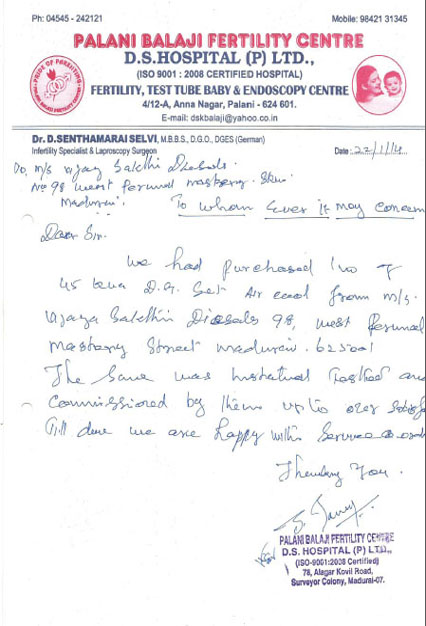 Ph: 04545 - 242121
Mobile: 98421 31345
PALANI BALAJI FERTILITY CENTRE
D.S.HOSPITAL (P) LTD.,
(ISO 9001 : 2008 CERTIFIED HOSPITAL)
FERTILITY, TEST TUBE BABY & ENDOSCOPY CENTRE
4/12-A, Anna Nagar, Palani - 624 601.
E-mail: dskbalaji@yahoo.co.in
PRIDE OF PARENTING
Dr. D.SENTHAMARAI SELVI, M.B.B.S., D.G.O., DGES (German)
Infertility Specialist & Laproscopy Surgeon
Date:
M/s Vijaya Sakthi Diesels.
No 98 West Perumal Mastery. Street
Madurai.
To whom Ever it May Concern
Dear Sir.
We had Purchased 1 no of
45 kva D.G. Set Air cool from M/s.
Vijaya Sakthi Diesels 98, West Perumal
Mastery Street Madurai. 625001
The Same was and
Commissioned by them upto our
Till date we are happy with Service
Thanking You.
PALANI BALAJI FERTILITY CENTRE
D.S. HOSPITAL (P) LTD.,
(ISO-9001:2008 Certified)
78, Alagar Kovil Road,
Surveyor Colony, Madurai-07.